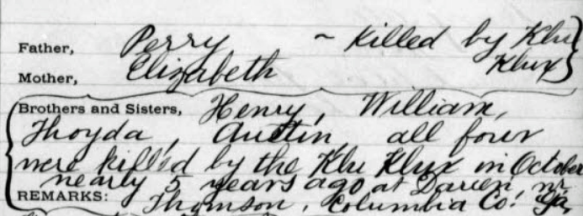 Father, Perry ~ killed by Klu
Mother, Elizabeth Klux
Brothers and Sisters, Henry, William,
Thoyda, Austin all four
were killed by the Klu Klux in October
nearly 5 years ago at Darien, nr
REMARKS: Thomson, Columbia Co. Ga